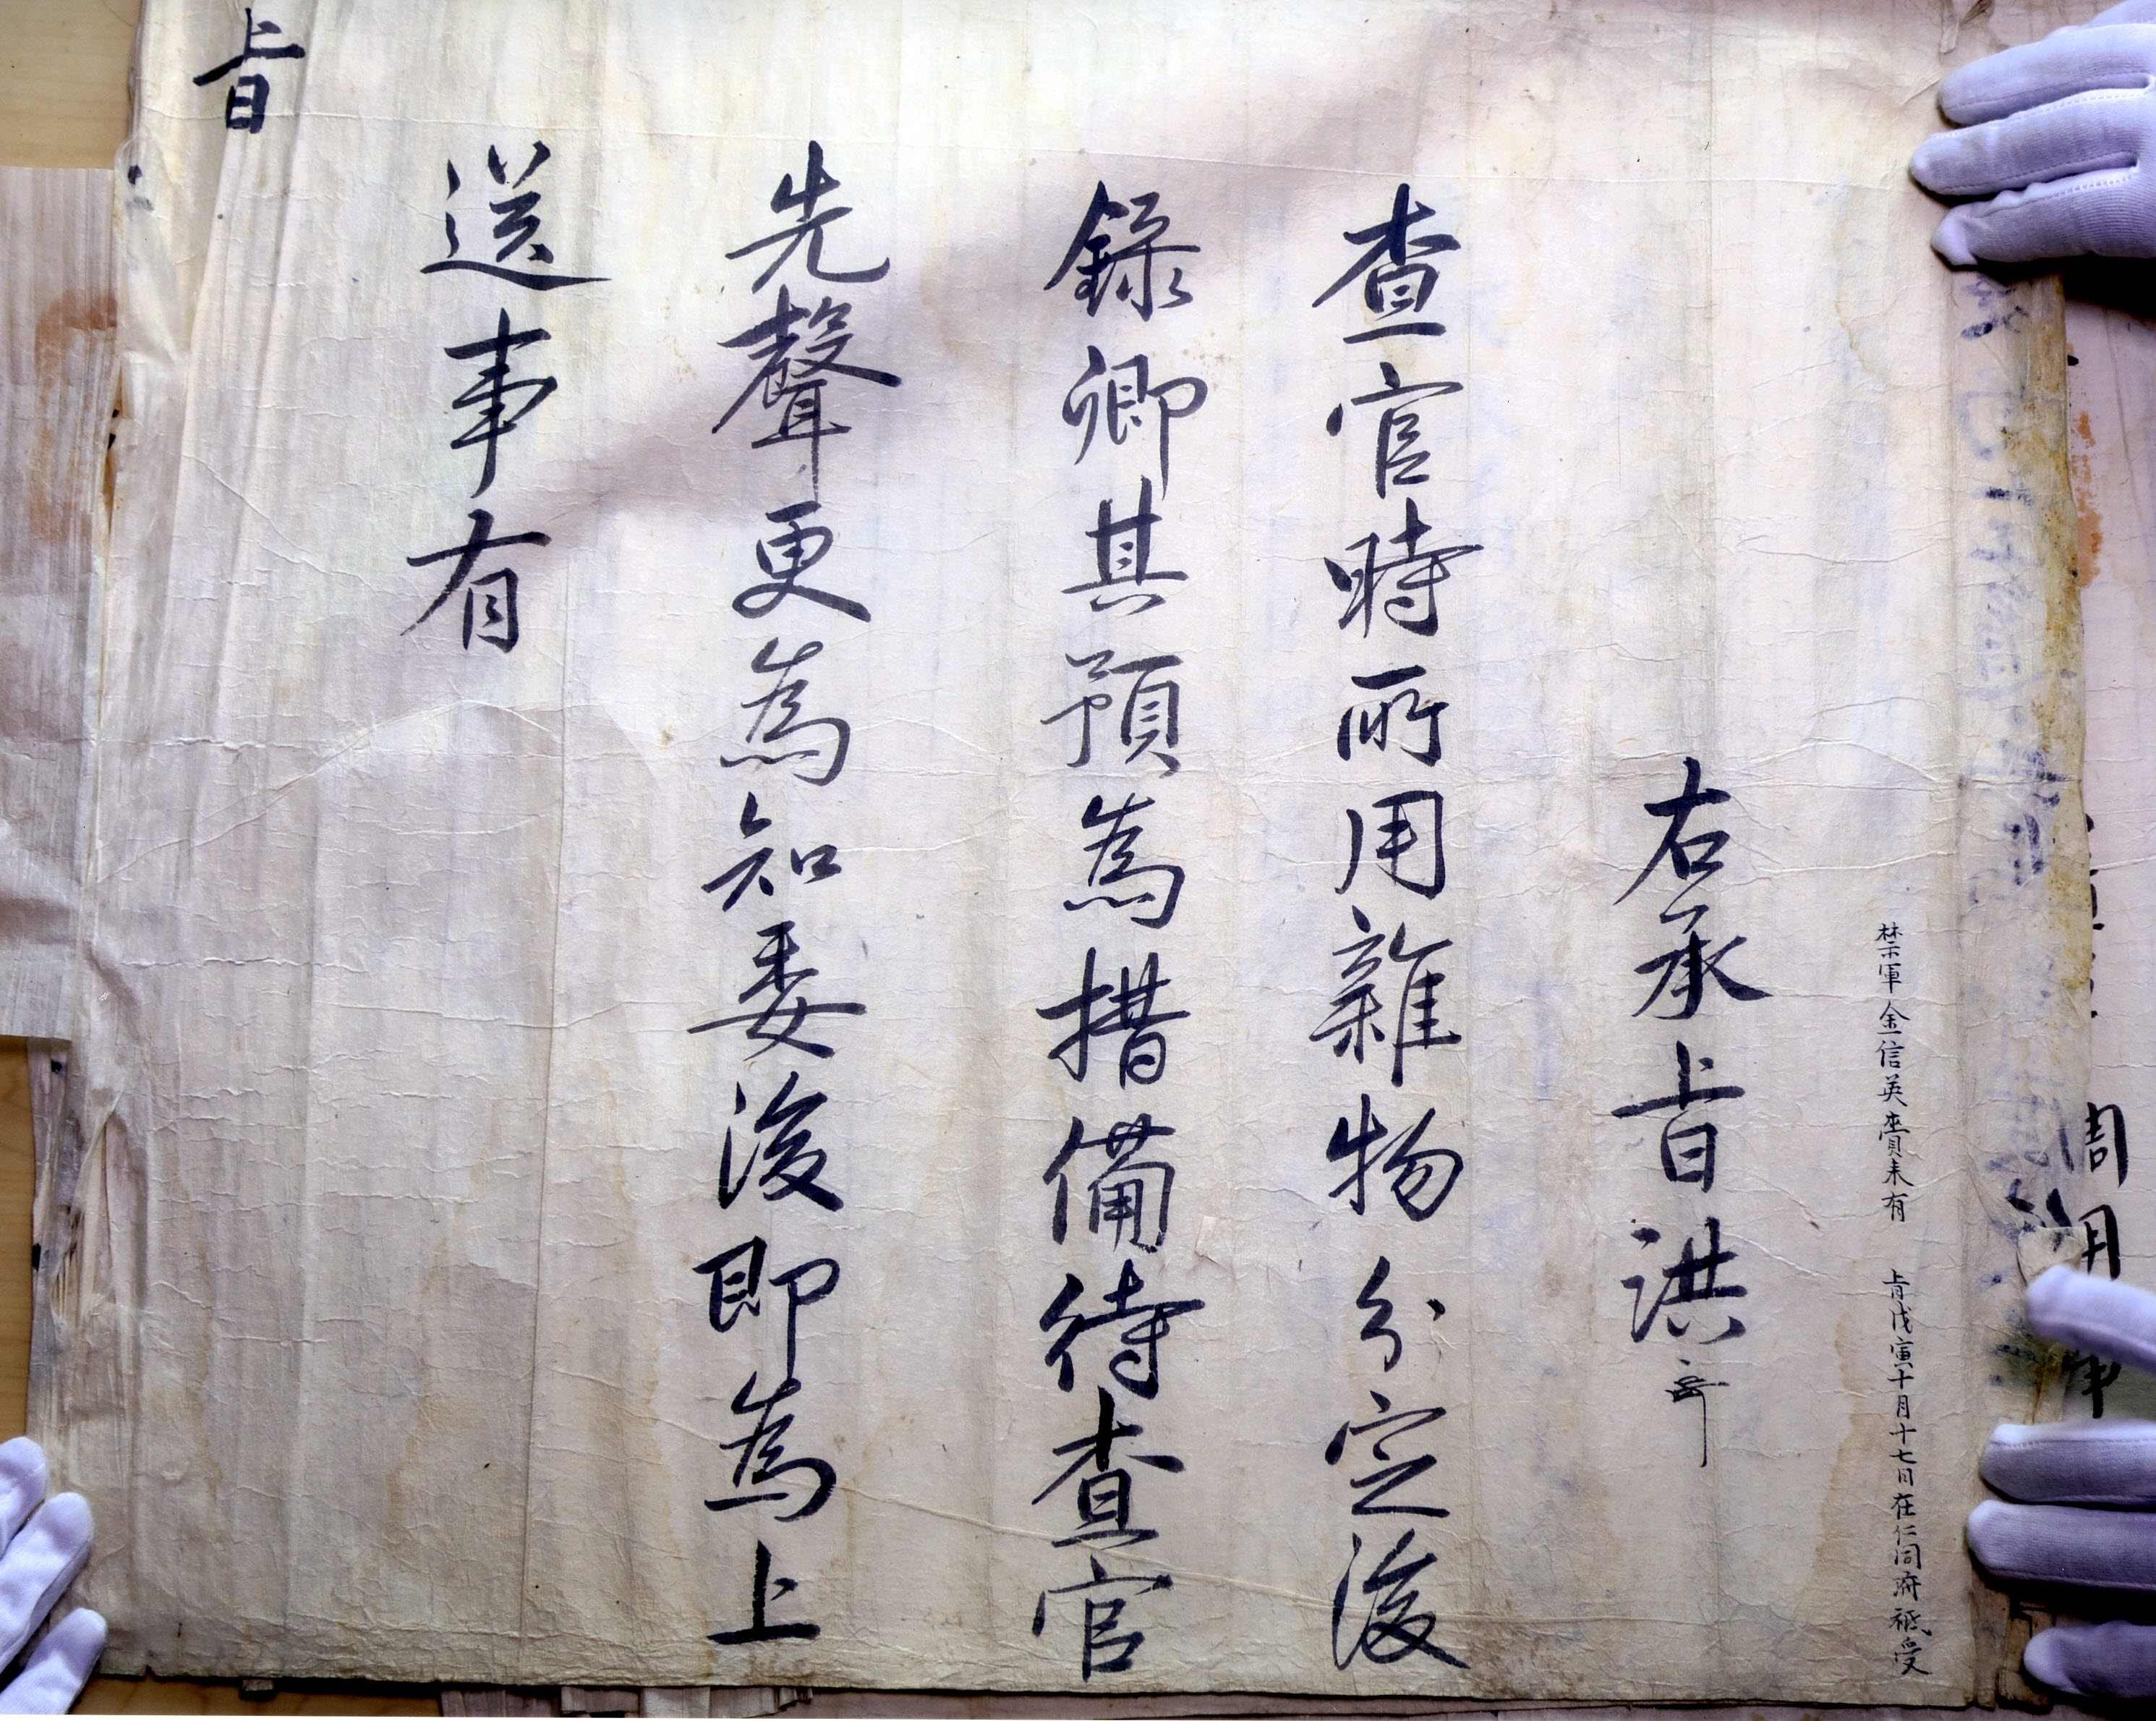 禁軍金信英賫来有 㫖戊寅十月十七日在仁同府祗受
右承㫖洪
查官時所用雜物分定後
錄卿其預為措備待查官
先聲更為知委後即為上
送事有
㫖